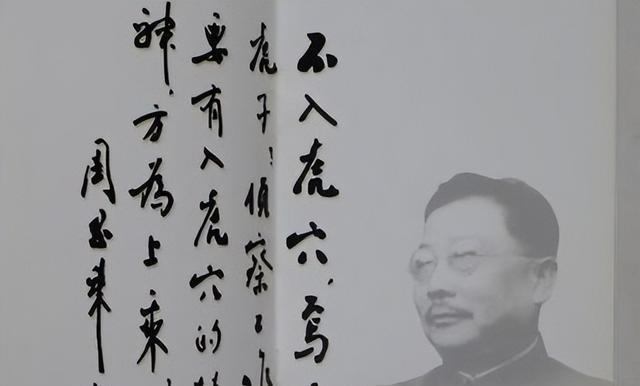 不入虎穴,焉
虎子;偵察工作
要有入虎穴的精
神,方為上乘
周恩来